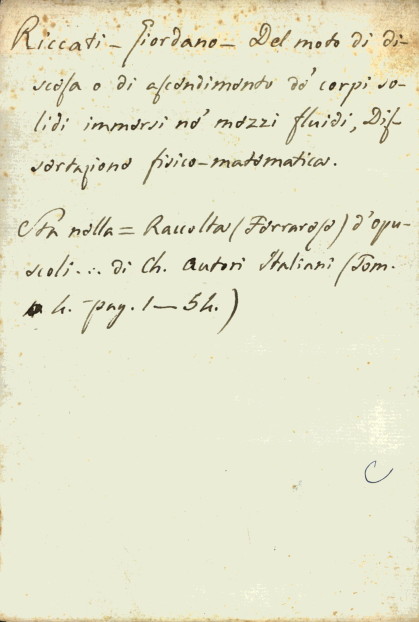 Riccati - Giordano - Del moto di di-
scesa o di ascendimento de' corpi so-
lidi immersi ne' mezzi fluidi, Dis-
sertazione fisico-matematica.
Sta nella = Raccolta (Ferrarese) d'opu-
scoli... di Ch. autori Italiani (Tom.
4. pag. 1 — 54.)
C